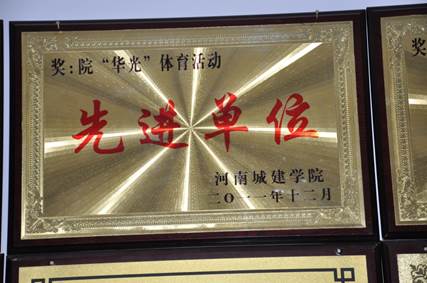 奖:院“华光”体育活动
先进单位
河南城建学院
二〇一一年十二月